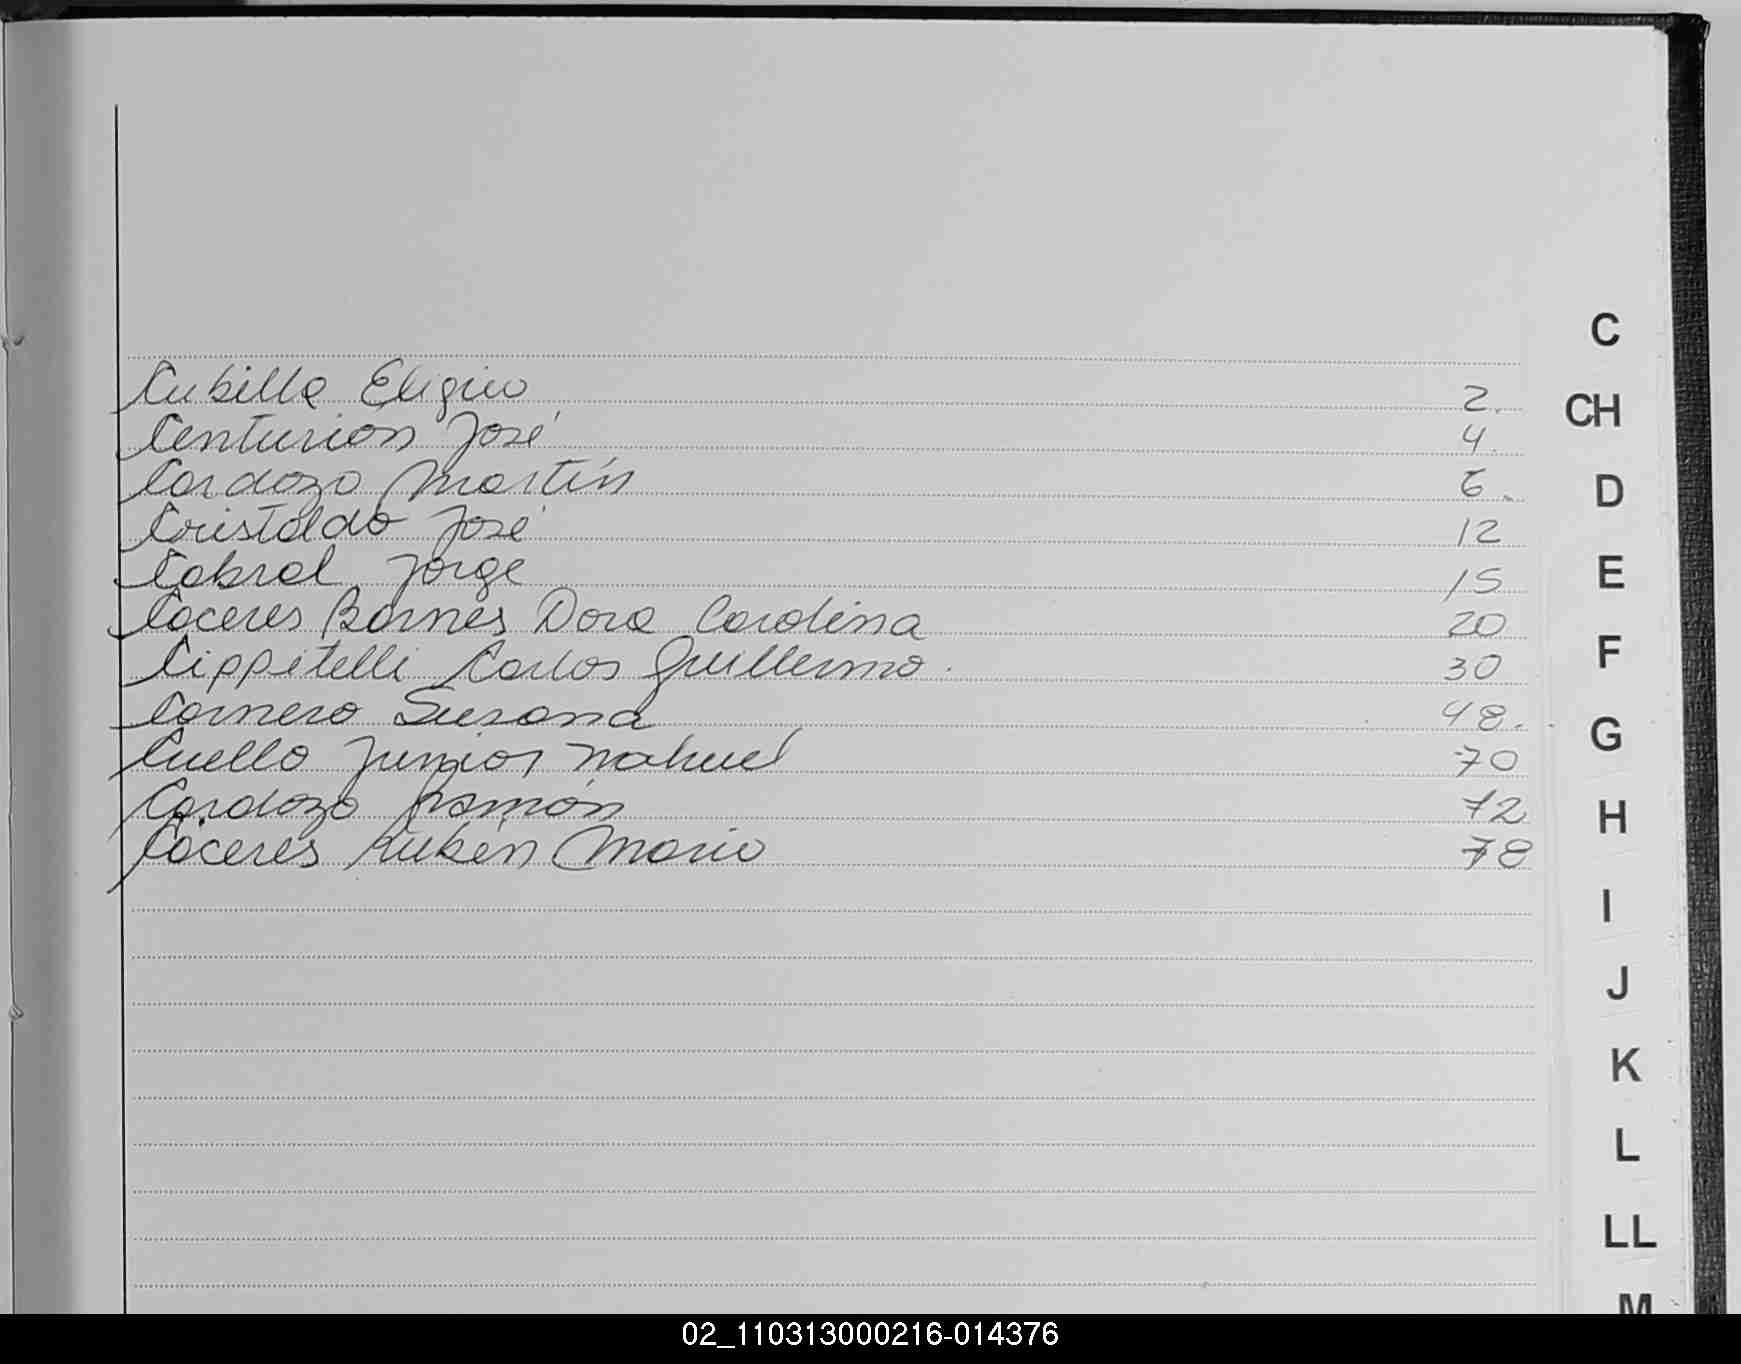 Cubilla Eligio 2.
C
Centurión José 4.
CH
Cardozo Martín 6.
D
Cristaldo José 12
Cabral Jorge 15
E
Caceres Barnes Dora Carolina 20
Cippitelli Carlos Guillermo. 30
F
Carnero Susana 48.
G
Cuello Junior Nahuel 70
Cardozo Ramón 72
H
Cáceres Rubén Mario 78
I
J
K
L
LL
M
02_110313000216-014376